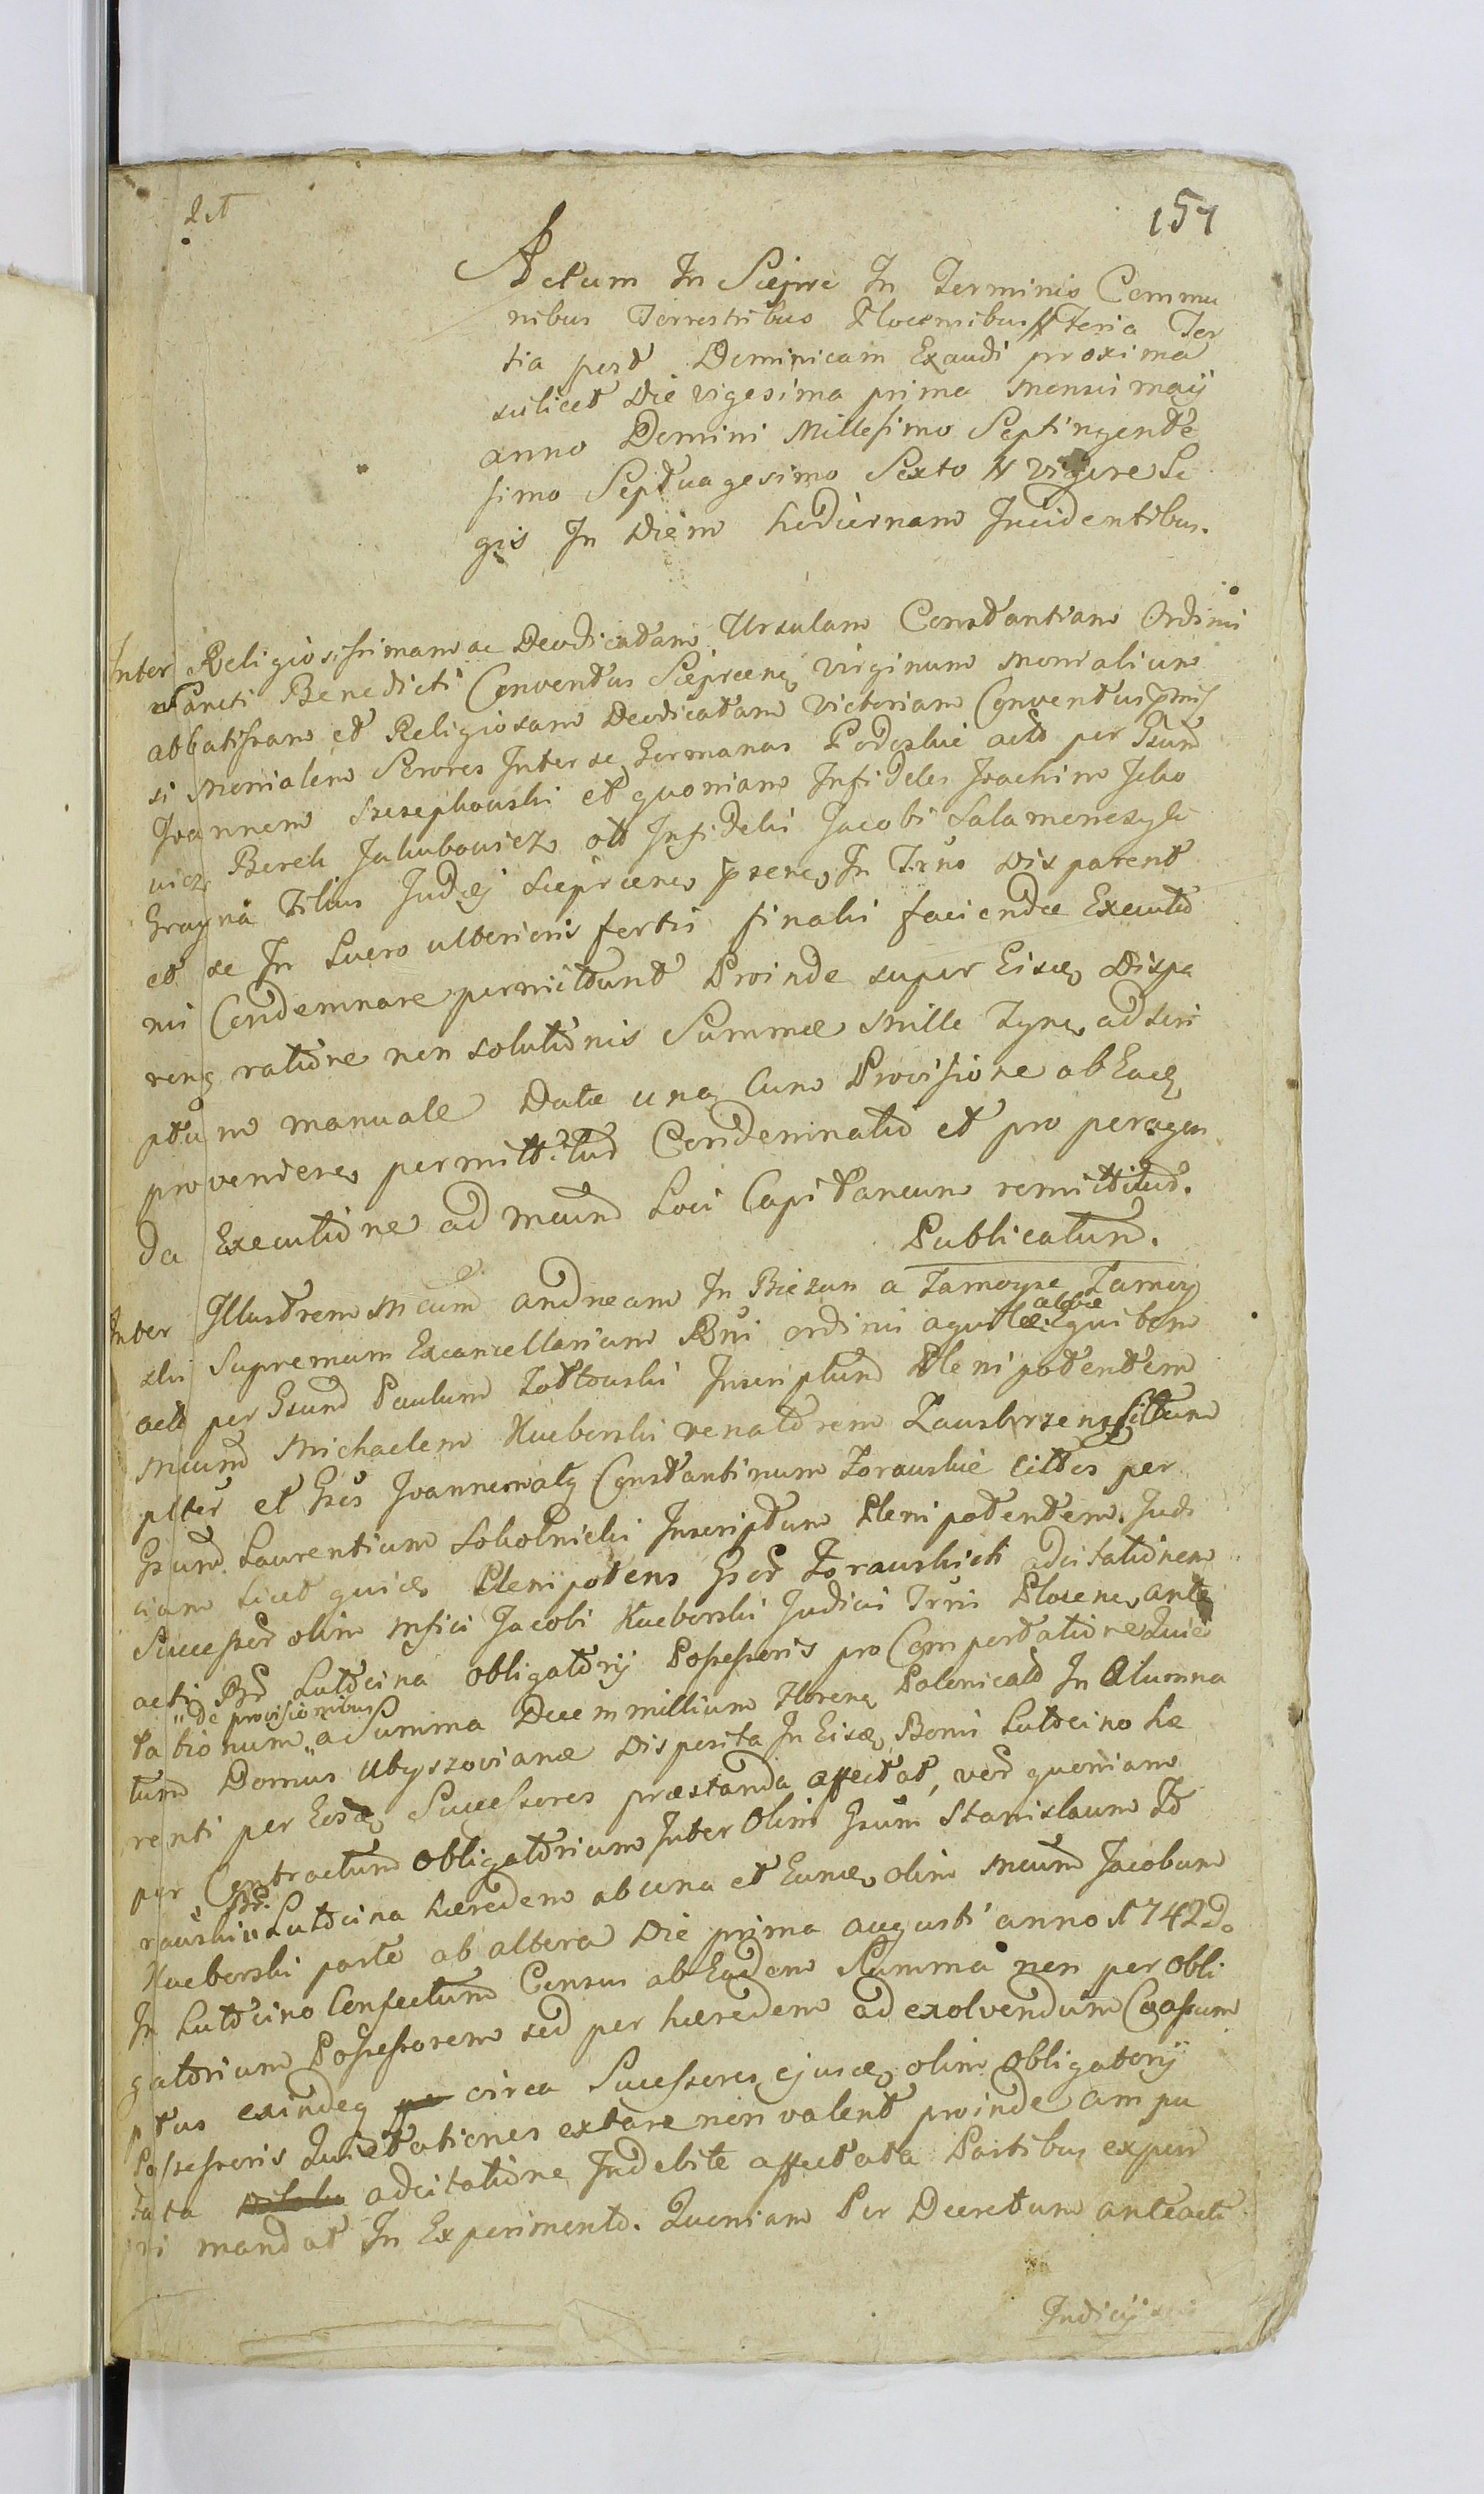 151
Actum In Sieprc In Terminis Commu
nibus Terrestribus Plocensibus Feria Ter
tia post Dominicam Exaudi proxima
scilicet Die vigesima prima Mensis maij
anno Domini Millesimo Septingente
simo Septuagesimo Sexto vigore Le
gis In Diem hodiernam Incidentibus.
Inter Religiosissimam ac Deodicatam Ursulam Constantiam Ordinis
Sancti Benedicti Conventus Sieprcen Virginum Monialium
abbatissam et Religiosam Deodicatam Victoriam Conventus
si Monialem Sorores Inter se Germanas Podoskie act per Gsum
Joannem et quoniam Infideles Joachim
Berek Jakubowicz Infidelis Jacobi
Filius Judej Sieprcen In Trno Disparent
et se In Lucro ulterioris fertis finalis faciendæ Executio
nis Condemnare permittunt Proinde super Eisd Dispa
ren ratione non solutionis Summæ Mille Tynf ad Scri
ptum manuale Datæ una Cum Provisione ab Ead
provenien permittitur Condemnatio et pro peragen
da Executione ad Mcum Loci Capitaneum remittitur.
Publicatum.
Inter Illustrem Mcum Andream In Biezun a Zamoysc Zamoy
ski Supremum Excancellarium Rni ordinis aquilæ albæ Equitem
act per Gsum Paulum Zottowski Inscriptum Plenipotentem
Mcum Michaelem Kucborski venatorem Zauskrzen Cittum
plter et Gsos Joannem atq Constantinum Zorawskie Cittos per
Gsum Laurentium Sokolnicki Inscriptum Plenipotentem. Judi
cium licet quid Plenipotens Gsor Zorawskich adcitationem
Successor olim Mfici Jacobi Kucborski Judicis Trris Plocen ante
acti Bor Lutocina obligatorij Possessoris pro Comportatione Quie
tationum "de provisionibus" a Summa Decem millium Floren Polonicalo In Alumna
tum Domus Ubyszovianæ Disposita In Eisd Bonis Lutocino hæ
renti per Eosd Successores præstanda affectat, vero quoniam
per Contractum obligatorium Inter Olim Gsum Stanislaum Zo
rawski "Bor" Lutocina hæredem ab una et Eund olim Mcum Jacobum
Kucborski parte ab altera Die prima augusti anno 1742do
In Lutocino Confectum Census ab Eadem Summa non per obli
gatorium Possessorem sed per hæredem ad exolvendum Coassum
ptus exindeq circa Successores ejusd olim obligatorij
Possessoris Quietationes extare non valent proinde ampu
tata adcitatione Indebite affectata Partibus experi
ri mandat In Experimento. Quoniam Per Decretum anteacti
Judicij